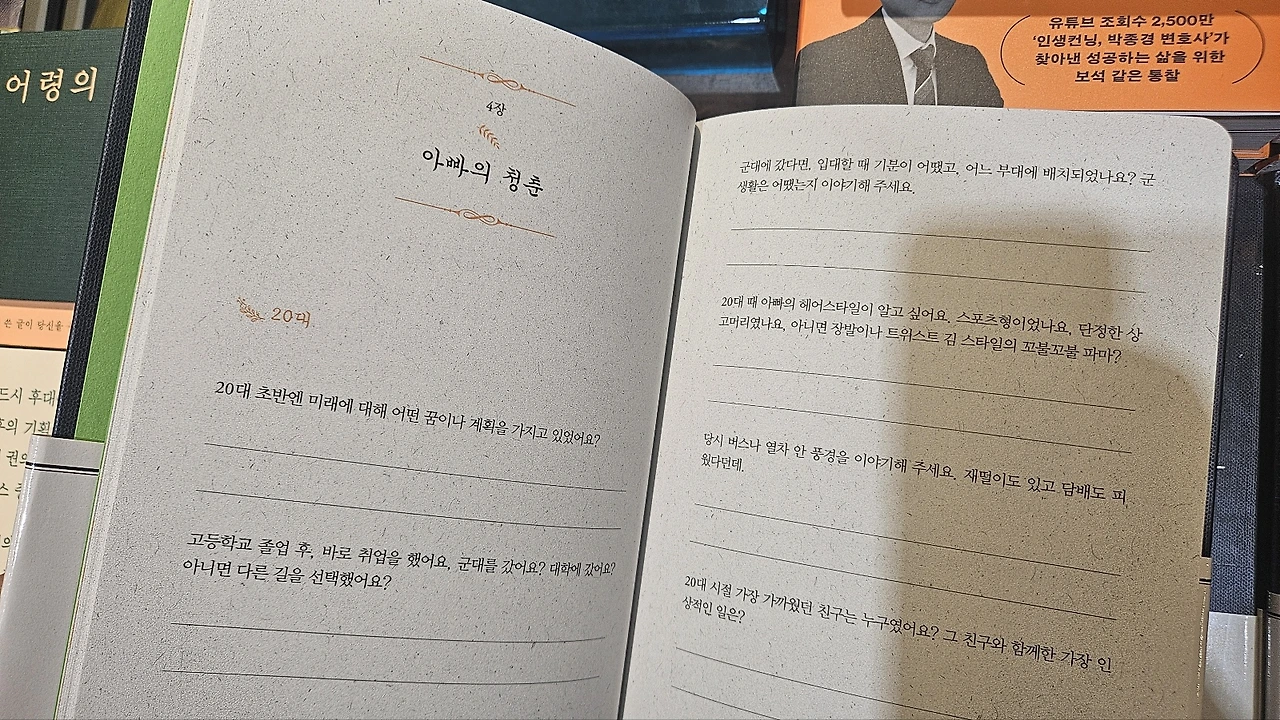 어령의
쓴 글이 당신을
드시 후대
유튜브 조회수 2,500만
‘인생컨닝, 박종경 변호사’가
찾아낸 성공하는 삶을 위한
보석 같은 통찰
4장
아빠의 청춘
20대
20대 초반엔 미래에 대해 어떤 꿈이나 계획을 가지고 있었어요?
고등학교 졸업 후, 바로 취업을 했어요, 군대를 갔어요? 대학에 갔어요?
아니면 다른 길을 선택했어요?
군대에 갔다면, 입대할 때 기분이 어땠고, 어느 부대에 배치되었나요? 군
생활은 어땠는지 이야기해 주세요.
20대 때 아빠의 헤어스타일이 알고 싶어요. 스포츠형이었나요, 단정한 상
고머리였나요, 아니면 장발이나 트위스트 김 스타일의 꼬불꼬불 파마?
당시 버스나 열차 안 풍경을 이야기해 주세요. 재떨이도 있고 담배도 피
웠다던데.
20대 시절 가장 가까웠던 친구는 누구였어요? 그 친구와 함께한 가장 인
상적인 일은?